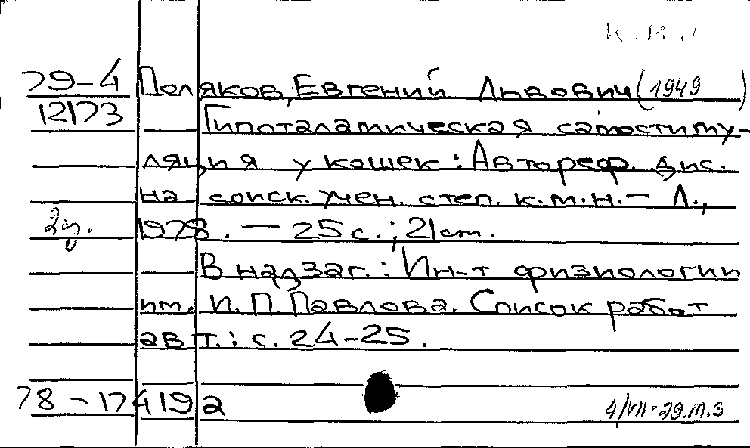 к.м.н
79-4 Поляков, Евгений Львович (1949
12173 Гипоталамическая самостиму-
ляция у кошек: Автореф. дис.
на соиск. учен. степ. к.м.н. — Л.,
2ц. 1978. — 25 с.; 21 см.
В надзаг.: Ин-т физиологии
им. И. П. Павлова. Список работ
авт.: с. 24-25.
78 - 174192